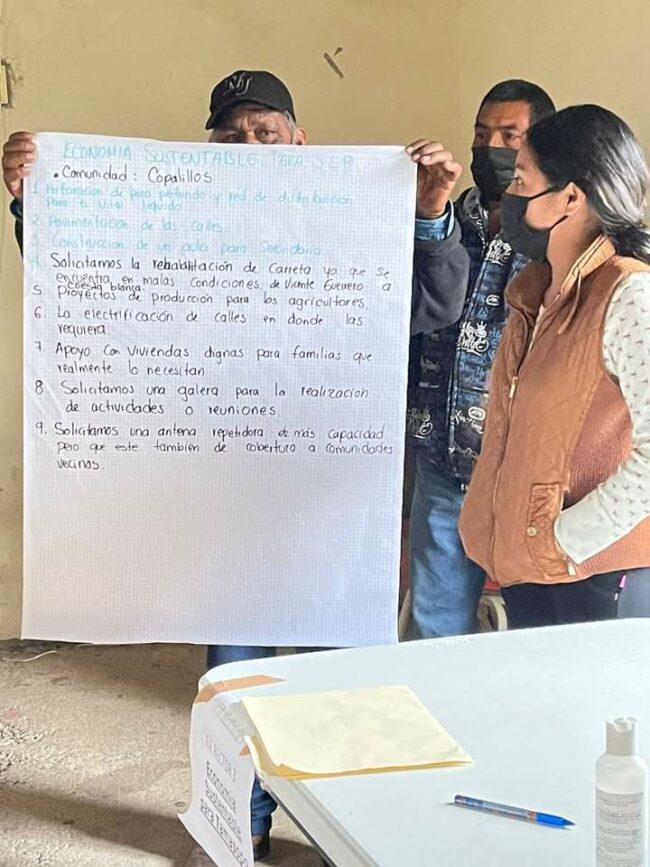 ECONOMIA SUSTENTABLE PARA S.L.P.
• Comunidad : Copalillos
1. Perforación de pozo profundo y red de distribución
Para el Vital liquido
2. Pavimentación de las calles
3. Construcción de un aula para Secundaria
4. Solicitamos la rehabilitación de Carreta ya que se
encuentra en malas condiciones, de Vicente Guerrero a
Cuesta blanca
5. Proyectos de producción para los agricultores.
6. La electrificación de calles en donde las
requiera.
7. Apoyo Con Viviendas dignas para familias que
realmente lo necesitan
8 Solicitamos una galera para la realización
de actividades o reuniones.
9. Solicitamos una antena repetidora de más capacidad
pero que este tambien de cobertura a comunidades
vecinas.
EJE RECTOR 2
Economía
Sustentable
para Tamasopo